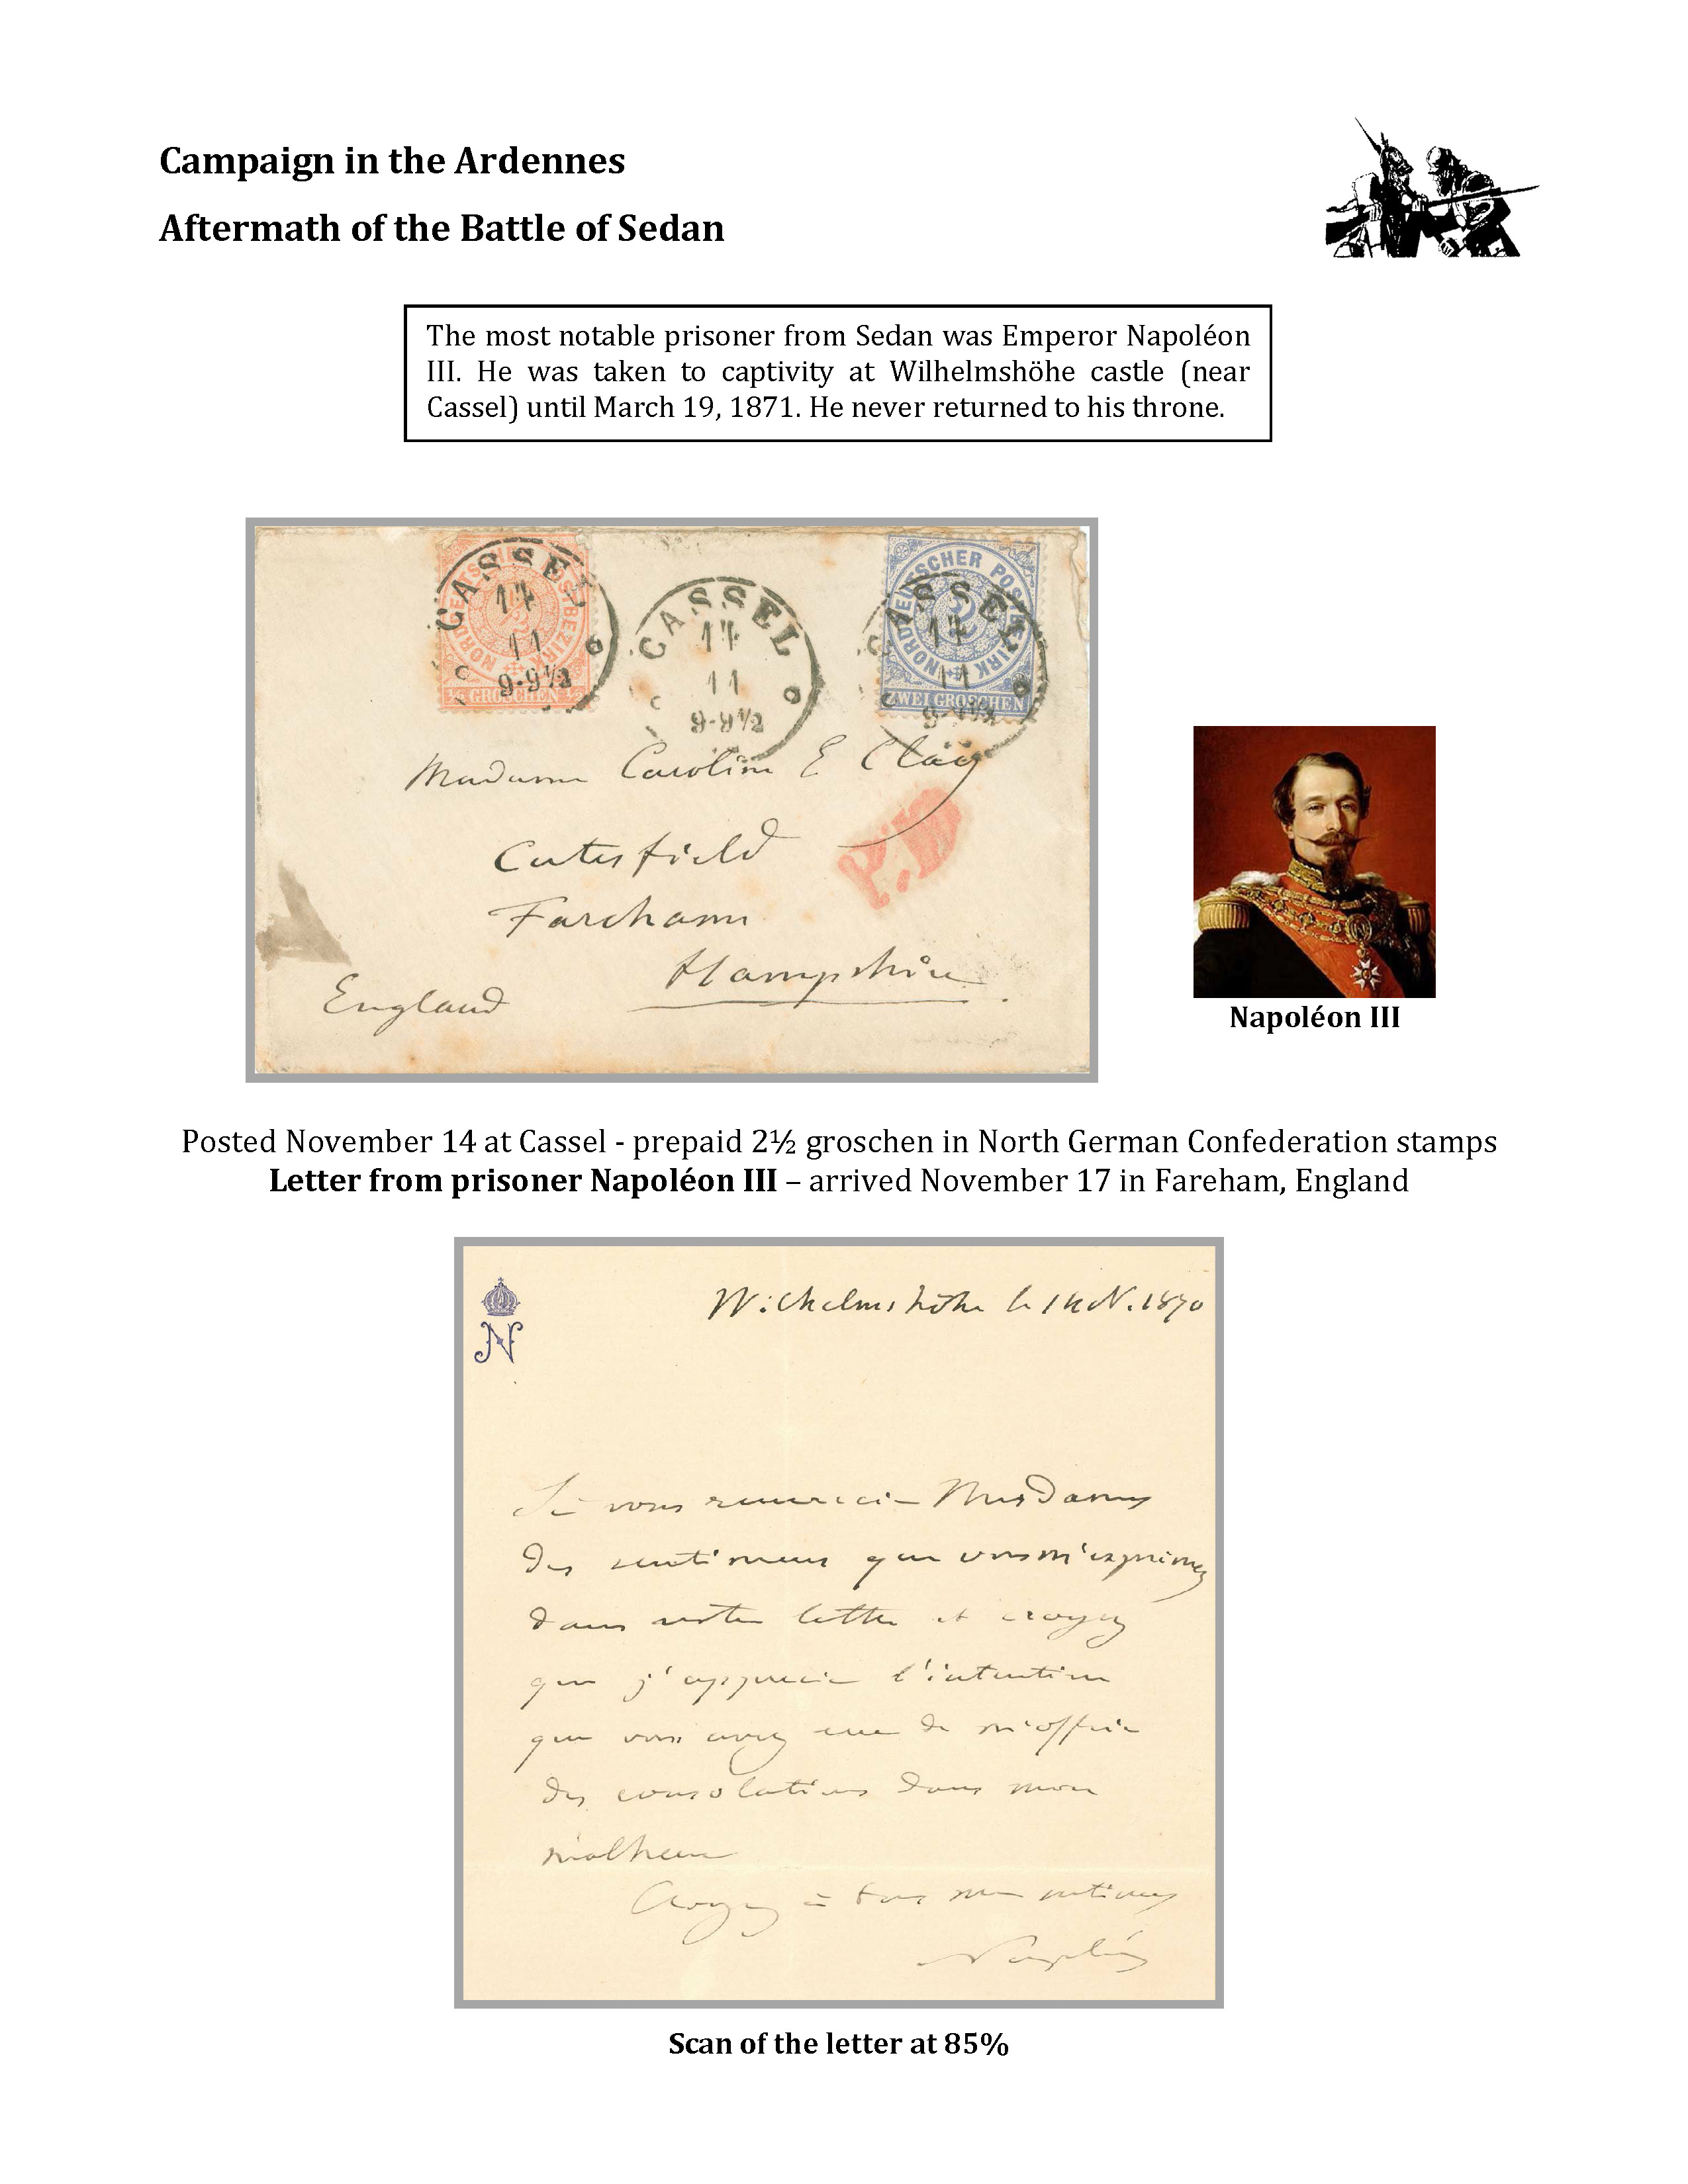 Campaign in the Ardennes
Aftermath of the Battle of Sedan
The most notable prisoner from Sedan was Emperor Napoléon
III. He was taken to captivity at Wilhelmshöhe castle (near
Cassel) until March 19, 1871. He never returned to his throne.
CASSEL
14
11
9-9½
NORDDEUTSCHER POSTBEZIRK
½ GROSCHEN ½
CASSEL
14
11
9-9½
CASSEL
14
11
NORDDEUTSCHER POSTBEZIRK
2
ZWEI GROSCHEN
Madame Caroline E
P.D.
Fareham
Hampshire
England
Napoléon III
Posted November 14 at Cassel - prepaid 2½ groschen in North German Confederation stamps
Letter from prisoner Napoléon III – arrived November 17 in Fareham, England
N
Wilhelmshöhe le 14 N. 1870
Je vous remercie Mesdames
des sentimens que vous m'exprimez
dans votre lettre et croyez
que j'apprecie l'intention
que vous avez eue de m'offrir
des consolations dans mon
malheur
Croyez à tous mes sentimens
Napoléon
Scan of the letter at 85%